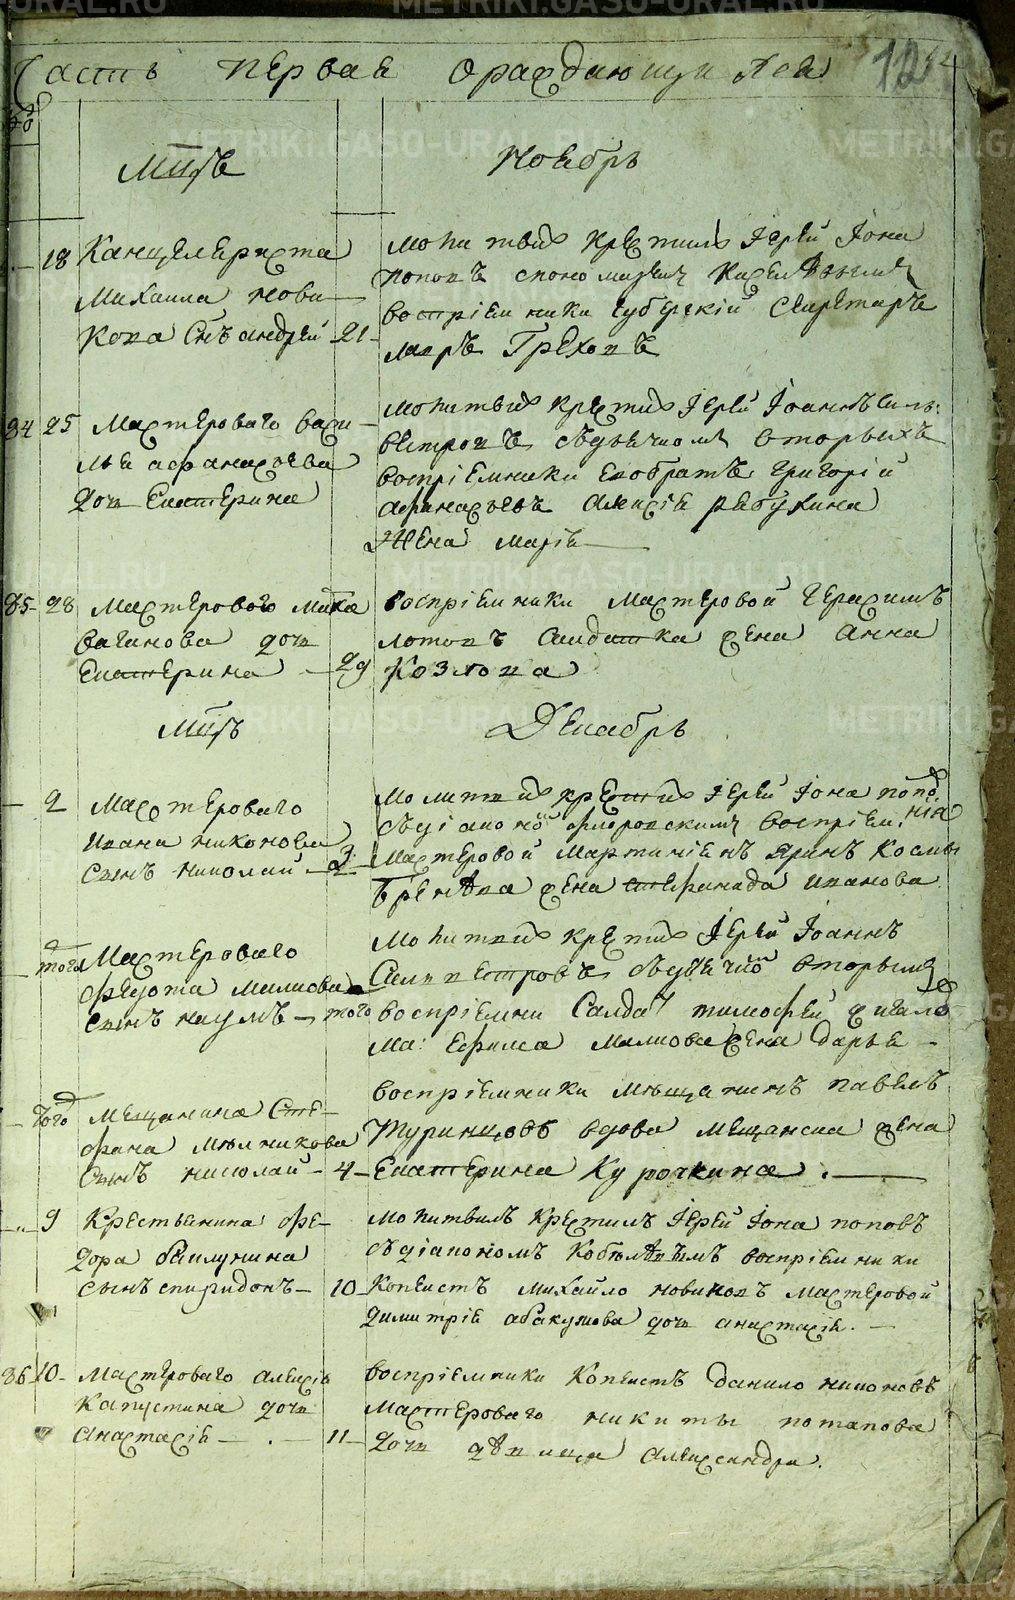 Часть первая ораждающихся 12
Мцъ Ноябрь
18 Канцеляриста
Михаила нови
кова Снъ андрей 21
молитвил крестил Іерей Іона
поповъ с пономарем
воспріемники губерскій Секретарь
Греховъ
84 25 Мастероваго васи
лья афанасьева
дочь Екатерина
молитвил крестил Іерей Іоаннъ Силь
вестровъ съдьячком вторыхъ
воспріемники Григорій
афанасьевъ алексія рябухина
жена марія
85 28 Мастероваго
ваганова дочь
Екатерина 29
воспріемники мастеровой Герасимъ
лотовъ салдатка жена анна
Козлова
Мцъ Декабрь
2 Мастероваго
ивана никонова
сынъ николай 3
Молитвил крестил Іерей Іона попо
съдіаконо флоровскимъ воспріемн
мастеровой мартиніянъ яринъ космы
жена ивановa
того Мастероваго
федота малкова
сынъ наумъ того
Молитвил крестил Іерей Іоаннъ
Сильвестровъ съдьячко вторым
воспріемни Салда тимофей
Ефима малкова жена дарья
того мещанина Сте
фана мельникова
сынъ николай 4
воспріемники мещанинъ павелъ
Туринцовъ вдова мещанска жена
Екатерина Курочкина
9 Крестьянина фе
дора
сынъ спиридонъ 10
молитвилъ крестилъ Іерей Іона поповъ
съдіакономъ воспріемники
Копеистъ михайло новиковъ мастеровой
димитрія абакумова дочь анастасія
86 10 Мастероваго алексія
Капустина дочь
анастасія 11
воспріемники Копеистъ данило никоновъ
мастероваго никиты потапова
дочь девица александра.
METRIKI.GASO-URAL.RU